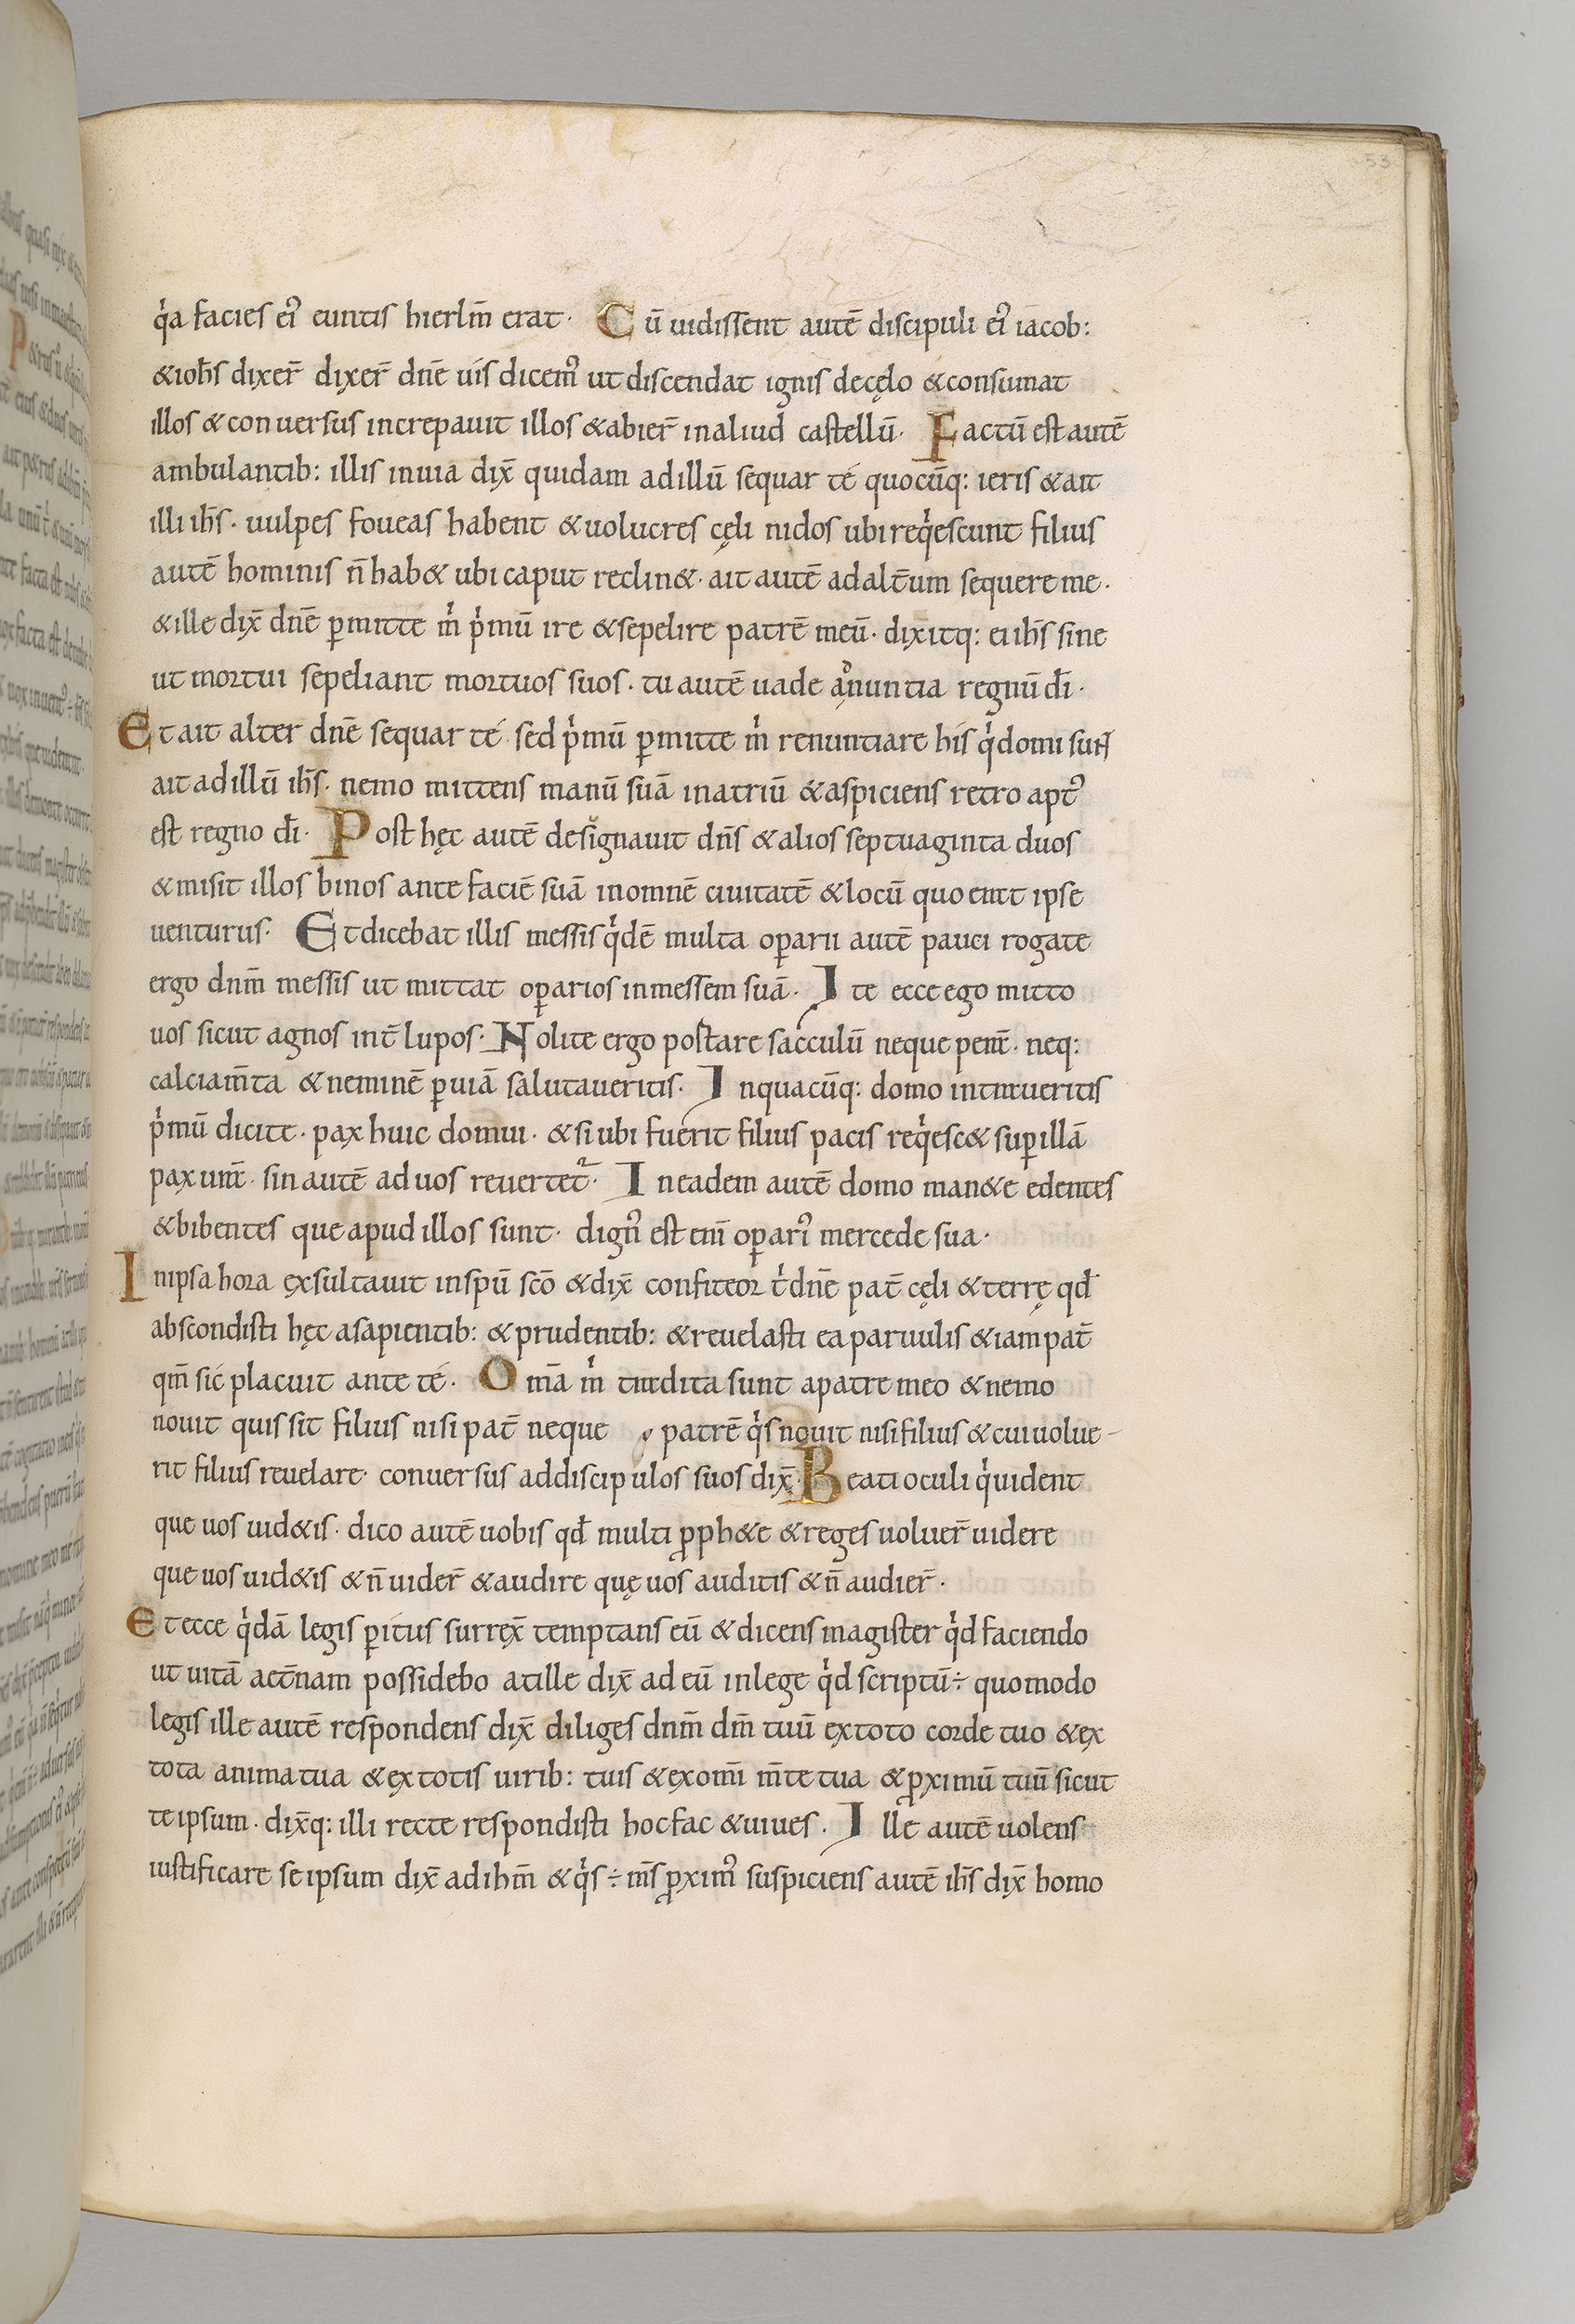 53
qͥa facies ei᷒ euntis hierlm̄ erat· Cū uidissent autē discipuli ei᷒ iacob:
&ioħs dixer̄ dixer̄ dn̄e uis dicem᷒ ut discendat ignis decęlo &consumat
illos & conuersus increpauit illos &abier̄ inaliud castellū· Factū est autē
ambulantib: illis inuia dix̄ quidam adillū sequar té quocūq: ieris &ait
illi ih̄s· uulpes foueas habent &uolucres cęli nidos ubi reqͥescunt filius
autē hominis n̄ hab& ubi caput reclin&· ait autē adalt̄um sequere me·
&ille dix̄ dn̄e ꝑmitte mͥ pͥmū ire &sepelire patrē meū· dixitq: ei ih̄s sine
ut mortui sepeliant mortuos suos· tu autē uade añuntia regnū dī·
Et ait alter dn̄e sequar té sed pͥmū ꝑmitte mͥ renuntiare his qͥ domi sunt
ait adillū ih̄s· nemo mittens manū suā inatriū &aspiciens retro apt᷒
est regno dī· Post hęc autē designauit dn̄s &alios septuaginta duos
&misit illos binos ante faciē suā inomnē ciuitatē &locū quo erat ipse
uenturus· Et dicebat illis messis qͥdē multa oꝑarii autē pauci rogate
ergo dnm̄ messis ut mittat oꝑarios inmessem suā· Ite ecce ego mitto
uos sicut agnos int̄ lupos· Nolite ergo postare sacculū neque peram· neq:
calciam̄ta &neminē ꝑ uiā salutaueritis· Inquacūq: domo intraueritis
pͥmū dicite· pax huic domui· &si ubi fuerit filius pacis reqͥesc& suꝑ illā
pax ura· sin autē ad uos reuertet᷑· Ineadem autē domo man&e edentes
&bibentes que apud illos sunt· dign᷒ est em̄ oꝑari᷒ mercede sua·
Inipsa hora exsultauit inspū scō &dix̄ confiteor tͥ dn̄e pat̄ cęli &terrę qđ
abscondisti hęc asapientib: &prudentib: &reuelasti ea paruulis &iam pat̄
qm̄ sic placuit ante té· Om̄a mͥ tradita sunt apatre meo &nemo
nouit quis sit filius nisi pat̄ neque patrē qͥs nouit nisi filius &cui uolue-
rit filius reuelare· conuersus addiscipulos suos dix̄· Beati oculi qͥ uident
que uos uid&is· dico autē uobis qđ multi ꝓph&e &reges uoluer̄ uidere
que uos uid&is &n̄ uider̄ &audire quę uos auditis &n̄ audier̄·
Et ecce qͥdā legis ꝑitus surrex̄ temptans eū &dicens magister qͥd faciendo
ut uitā aet̄nam possidebo atille dix̄ ad eū inlege qͥd scriptū÷ quomodo
legis ille autē respondens dix̄ diliges dnm̄ dm̄ tuū extoto corde tuo &ex
tota anima tua &extotis uirib: tuis &exomī m̄te tua &ꝓximū tuū sicut
te ipsum· dix̄q: illi recte respondisti hoc fac &uiues· Ille autē uolens
iustificare se ipsum dix̄ ad ihm̄ &qͥs÷ m̄s ꝓxim᷒ suspiciens autē ih̄s dix̄ homo